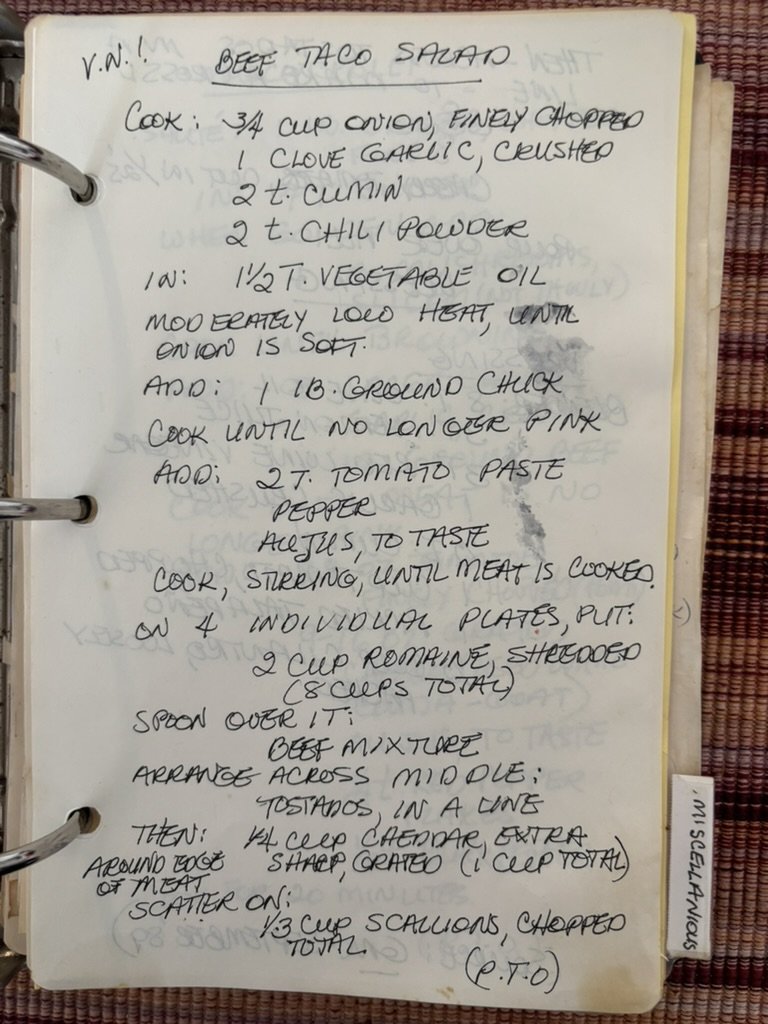 V.N.! BEEF TACO SALAD
COOK: 3/4 CUP ONION, FINELY CHOPPED
1 CLOVE GARLIC, CRUSHED
2 t. CUMIN
2 t. CHILI POWDER
IN: 1 1/2 T. VEGETABLE OIL
MODERATELY LOW HEAT, UNTIL
ONION IS SOFT.
ADD: 1 LB. GROUND CHUCK
COOK UNTIL NO LONGER PINK
ADD: 2 T. TOMATO PASTE
PEPPER
TO TASTE
COOK, STIRRING, UNTIL MEAT IS COOKED.
ON 4 INDIVIDUAL PLATES, PUT:
2 CUP ROMAINE, SHREDDED
(8 CUPS TOTAL)
SPOON OVER IT:
BEEF MIXTURE
ARRANGE ACROSS MIDDLE:
TOSTADOS, IN A LINE
THEN: 1/4 CUP CHEDDAR, EXTRA
AROUND EDGE SHARP, GRATED (1 CUP TOTAL)
OF MEAT
SCATTER ON:
1/3 CUP SCALLIONS, CHOPPED
TOTAL
(P.T.O)
MISCELLANIOUS